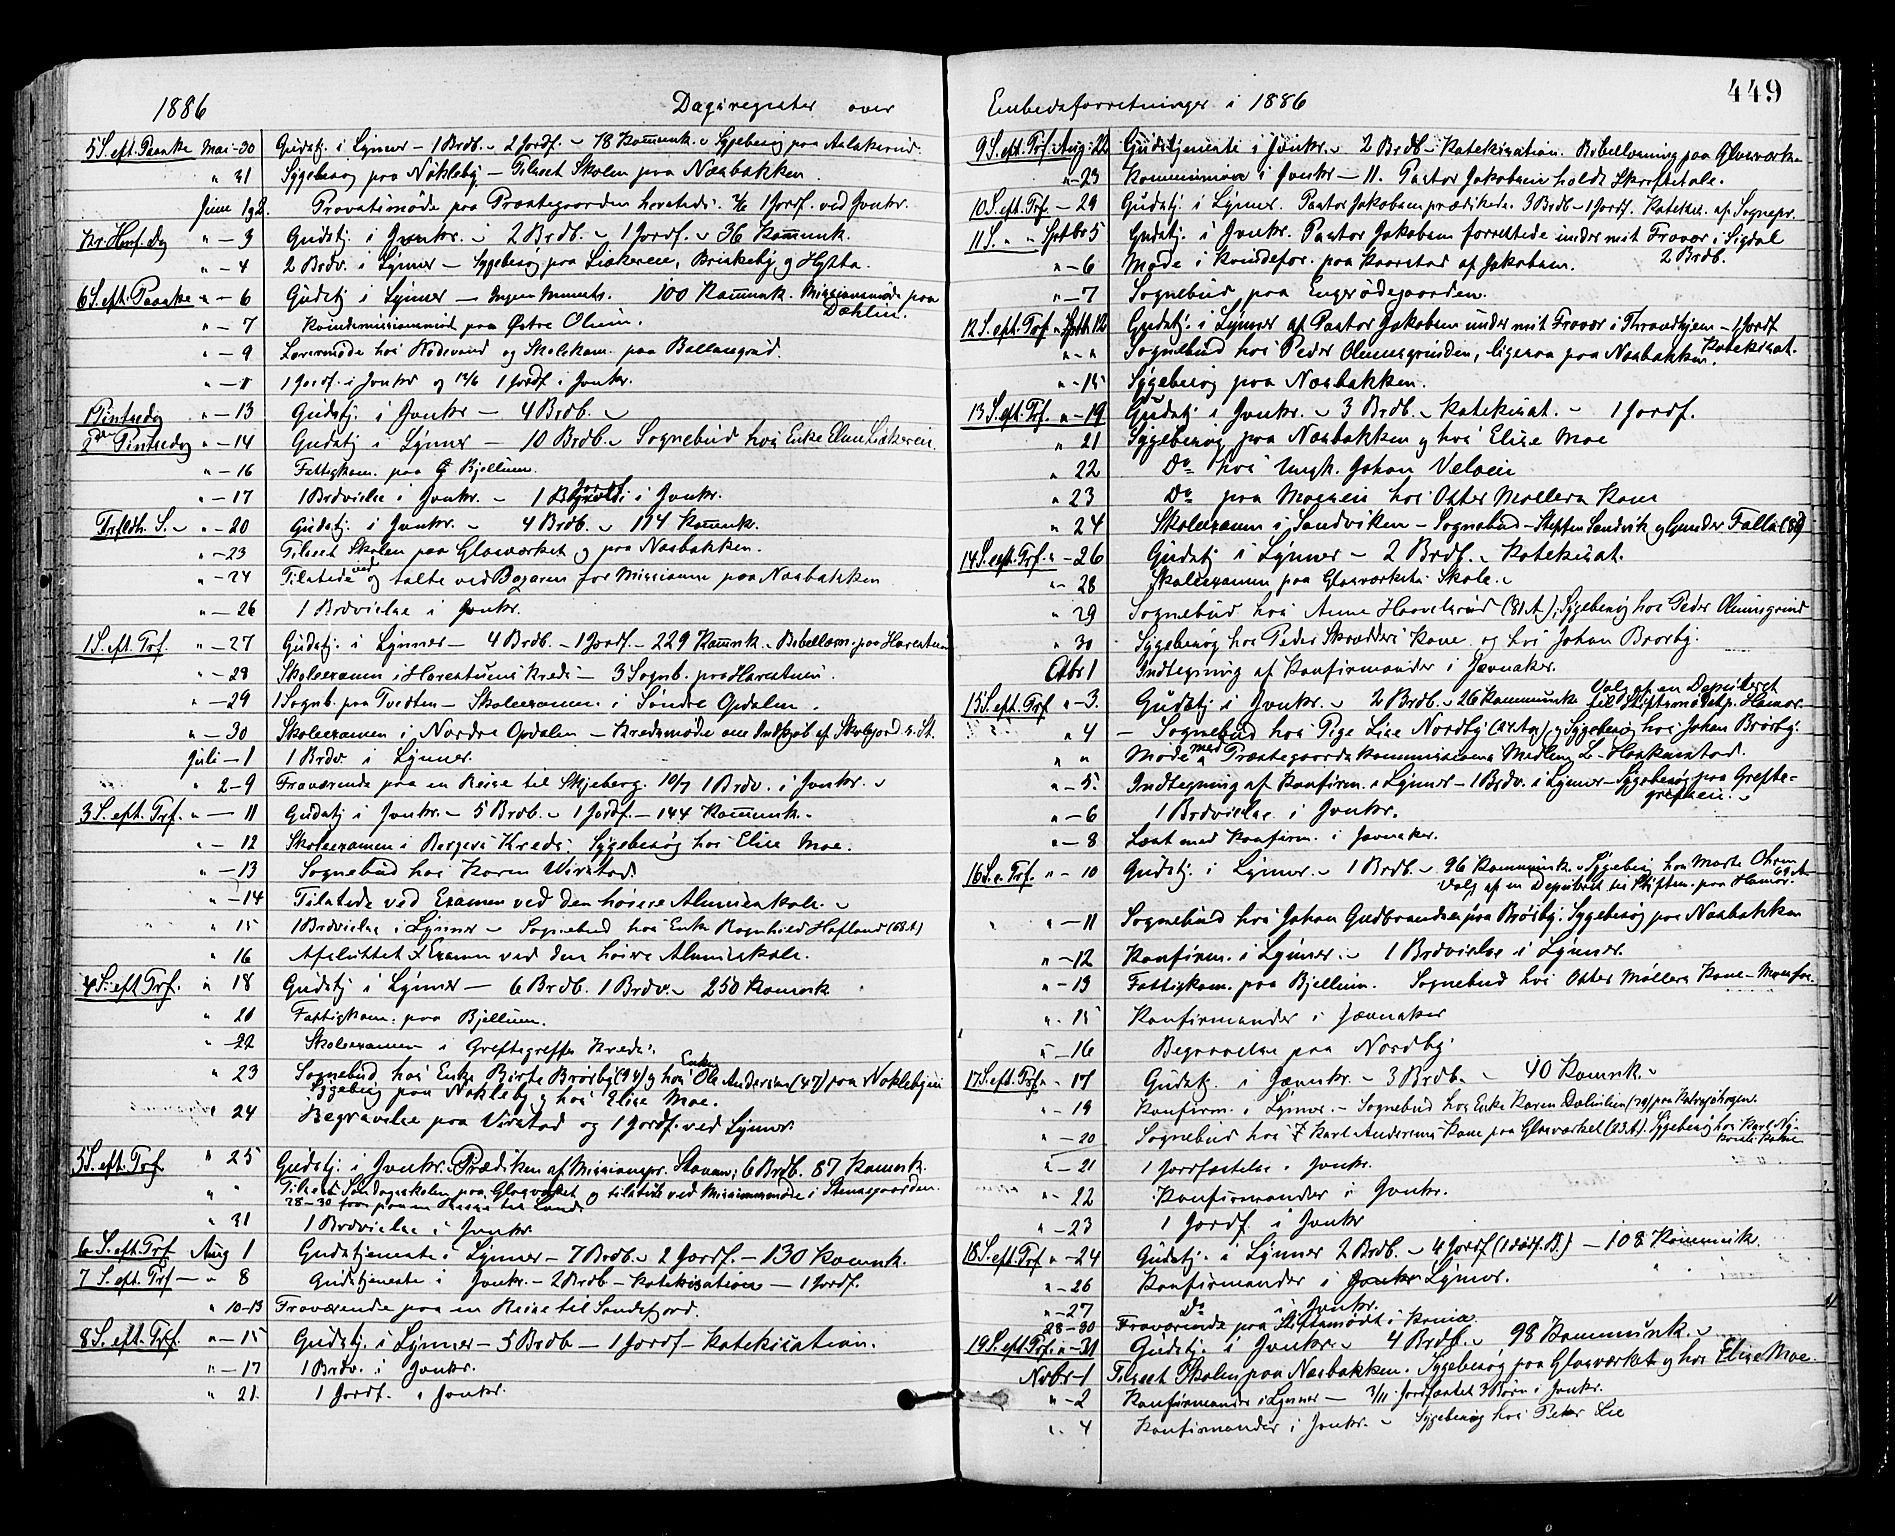 449
1886 Dagsregister over
5 S. eft. Paaske Mai - 30 Gudstj. i Lynner - 1 Brdb. - 2 Jordf. - 78 Kommunk. - Sygebesøg paa
" 31 Sygebesøg paa Nökleby - Tilseet Skolen paa Næsbakken.
Juni 1 & 2. Provstimøde paa Præstegaarden 1 Jordf. ved Jvnkr.
Kr. Himf. Dg " - 3 Gudstj. i Jvnkr. - 2 Brdb. - 1 Jordf. - 36 Kommunk.
" - 4 2 Brdv. i Lynner - Sygebesøg paa Liekereie, Brinkeby og Hytta.
6 S. eft. Paaske " - 6 Gudstj. i Lynner - 100 Kommunk. Missionsmøde paa Dæhlin.
" - 7 Kvindemissionsmøde paa Østre Olum.
" - 9 Lærermøde hos og Skolekom. paa Ballangrud.
" - 11 1 Jordf. i Jvnkr og 12/6 1 Jordf. i Jvnkr.
1 Pintsedg " - 13 Gudstj. i Jvnkr - 4 Brdb. -
2den Pintsedg " - 14 Gudstj. i Lynner - 10 Brdb. - Sognebud hos Enke
" - 16 Fattigkom. paa Bjellum.
" - 17 1 Brdvielse i Jvnkr. - 1 Jordf. i Jvnkr.
Trfldh. S. - " - 20 Gudstj. i Jvnkr. - 4 Brdb. - 174 Kommnk.
" - 23 Tilseet Skolen paa Glasværket og paa Næsbakken.
" - 24 Tilstede ved og talte ved Bazaren for Missionen paa Næsbakken
" - 26 1 Brdvielse i Jvnkr.
1 S. eft. Trf. " - 27 Gudstj. i Lynner - 4 Brdb. - 1 Jordf. - 229 Kommnk. - Bibellæsn. paa Harestuen
" - 28 Skoleexamen i Harestuens Kreds - 3 Sognb. paa Harestuen.
" - 29 1 Sognb. paa Tveten - Skoleexamen i Søndre Opdalen.
" - 30 Skoleexamen i Nordre Opdalen - Kredsmøde om Indkjøb af Skolejord
Juli - 1 1 Brdv i Lynner.
" 2 - 9 Fraværende paa en Reise til Skjeberg. 10/7 1 Brdv. i Jvnkr. -
3 S. eft. Trf. " - 11 Gudstj i Jvnkr. - 5 Brdb. - 1 Jordf. - 144 Kommunk.
" - 12 Skoleexamen i Bergers Kreds. Sygebesøg hos Elise Moe.
" - 13 Sognebud hos Karen Wirstad.
" - 14 Tilstede ved Examen ved den høiere Almueskole. -
" 15 1 Brdvielse i Lynner - Sognebud hos Enke Ragnhild Hafland (68 A)
" 16 Afsluttet Examen ved den høiere Almueskole.
4 S. eft Trf. " 18 Gudstj i Lynner - 6 Brdb. 1 Brdv. - 250 Komnk
" 20 Fattigkom. paa Bjellum.
" - 22 Skoleexamen i Greftegreffs Kreds.
" 23 Sognebud hos Enke Birte Brørby (94) og hos Enke Ole Andersens (47) paa Noklebyeie
Sygebesøg paa Nökleby og hos Elise Moe.
" 24 Begravelse paa Virstad og 1 Jordf. ved Lynner
5 S. eft. Trf " 25 Gudstj. i Jvnkr. Prædiken af Missionspr. Stavem; 6 Brdb. 87 Komnk.
" " Tilseet Søndagsskolen paa Glasværket og tilstede ved Missionsmøde i Stensgaarden.
28 - 30 paa en Reise til Land.
" 31 1 Brdvielse i Jvnkr.
6 S. eft. Trf Aug 1 Gudstjeneste i Lynner - 7 Brdb. - 2 Jordf. - 130 Komnk.
7 S. eft. Trf - " 8 Gudstjeneste i Jvnkr. - 2 Brdb - Katekisation - 1 Jordf.
" 10-13 Fraværende paa en Reise til Sandefjord.
8 S. eft. Trf. " - 15 Gudstj. i Lynner - 5 Brdb - 1 Jordf - Katekisation.
" - 17 1 Brdv. i Jvnkr.
" 21. 1 Jordf. i Jvnkr.
Embedsforretninger i 1886
9 S. eft. Trf. Aug. 22 Gudstjeneste i Jvnkr. - 2 Brdb - Katekisation. Bibellæsning paa Glasværk.
" - 23 i Jvnkr - 11. Pastor Jakobsen holdt Skriftetale.
10 S. eft. Trf. - 29 Gudstj i Lynner. Pastor Jakobsen prædikede. 3 Brdb - 1 Jordf. Katekis. af Sognepr.
11 S. " " Sptbr 5 Gudstj. i Jvnkr. Pastor Jakobsen forrettede under mit Fravær i Sigdal 2 Brdb.
" - 6 Møde i Kvindefor. paa Kaarstad af Jakobsen.
" - 7 Sognebud paa Engnødegaarden.
12 S. eft. Trf " Sptb 12 Gudstj. i Lynner af Pastor Jakobsen under mit Fravær i Throndhjem - 1 Jordf Katekisat.
" - " Sognebud hos Peder Olimsgrinden, ligesaa paa Næsbakken.
" - 15 Sygebesøg paa Næsbakken.
13 S. eft. Trf. " - 19 Gudstj i Jvnkr. - 3 Brdb. - Katekisat. - 1 Jordf.
" 21 Sygebesøg paa Næsbakken og hos Elise Moe
" 22 Do hos Ungk. Johan Velseie
" 23 Do paa Moeseie hos Oster Møllers Kone
" 24 Skoleexamen i Sandviken - Sognebud - Steffen Sandvik og Gunder Falla (80)
14 S. eft. Trf. " - 26 Gudstj i Lynner - 2 Brdf. - Katekisat.
" - 28 Skoleexamen paa Glasværkets Skole. -
" 29 Sognebud hos Anne Haavelsrud (81 A.), Sygebesøg hos Peder Olimsgrind
" 30 Sygebesøg hos Peder Skrædders Kone og hos Johan Brørby.
Otbr 1 Indtegning af Konfirmander i Jævnaker.
15 S. eft. Trf " - 3. Gudstj i Jvnkr. - 2 Brdb. - 26 Kommunk Valg af en Deputeret til Stiftsmødet p. Hamar.
" 4 - Sognebud hos Pige Lise Nordby og Sygebesøg hos Johan Brørby.
" " Møde med Præstegaardskommissionens Medlem L. Haakenstad.
" - 5. Indtegning af Konfirm. i Lynner - 1 Brdv. i Lynner - Sygebesøg paa Grefte-
grefseie. -
" - 6 1 Brdvielse i Jvnkr.
" - 8 Læst med Konfirm. i Jævnaker.
16 S. e. Trf. " - 10 Gudstj. i Lynner. - 1 Brdb. - 96 Kommunk - Sygebesøg hos Marte 69 A.
Valg af en Deputeret til Stiftsm. paa Hamar.
" - 11 Sognebud hos Johan Gudbrandsen paa Brørby. Sygebesøg paa Næsbakken
" - 12 Konfirm. i Lynner. - 1 Brdvielse i Lynner.
" - 13 Fattigkom. paa Bjellum. Sognebud hos Oster Møllers Kone - Moesseie.
" - 15 Konfirmander i Jævnaker
" - 16 Begravelse paa Nordby.
17 S. eft. Trf " - 17 Gudstj. i Jævnkr. - 3 Brdb. - 40 Komnk. -
" - 19 Konfirm. i Lynner. - Sognebud hos Enke Karen Dælinlien paa
" - 20 Sognebud hos Karl Andersens Kone paa Glasværket (23 A). Sygebesøg hos Karl Ny-
" - 21 1 Jordfæstelse i Jvnkr.
" - 22 Konfirmander i Jvnkr.
" - 23 1 Jordf. i Jvnkr
18 S. eft. Trf " - 24 Gudstj. i Lynner 2 Brdb. - 4 Jordf (1 dødf. B.) - 108 Kommunik.
" - 26 Konfirmander i Lynner.
" - 27 Do i Jvnkr.
28 - 30 Fraværende paa Stiftsmødet i Krnia.
19 S. eft. Trf. " - 31 Gudstj. i Jvnkr. - 4 Brdb. - 98 Kommunk. -
Nvbr - 1 Tilseet Skolen paa Næsbakken. Sygebesøg paa Glasværket og hos Elise Moe.
" - 2 Konfirmander i Lynner - 3/11 Jordfæstet 3 Børn i Jvnkr.
" 4 Konfirmander i Jvnkr. - Sygebesøg hos Peter Lie